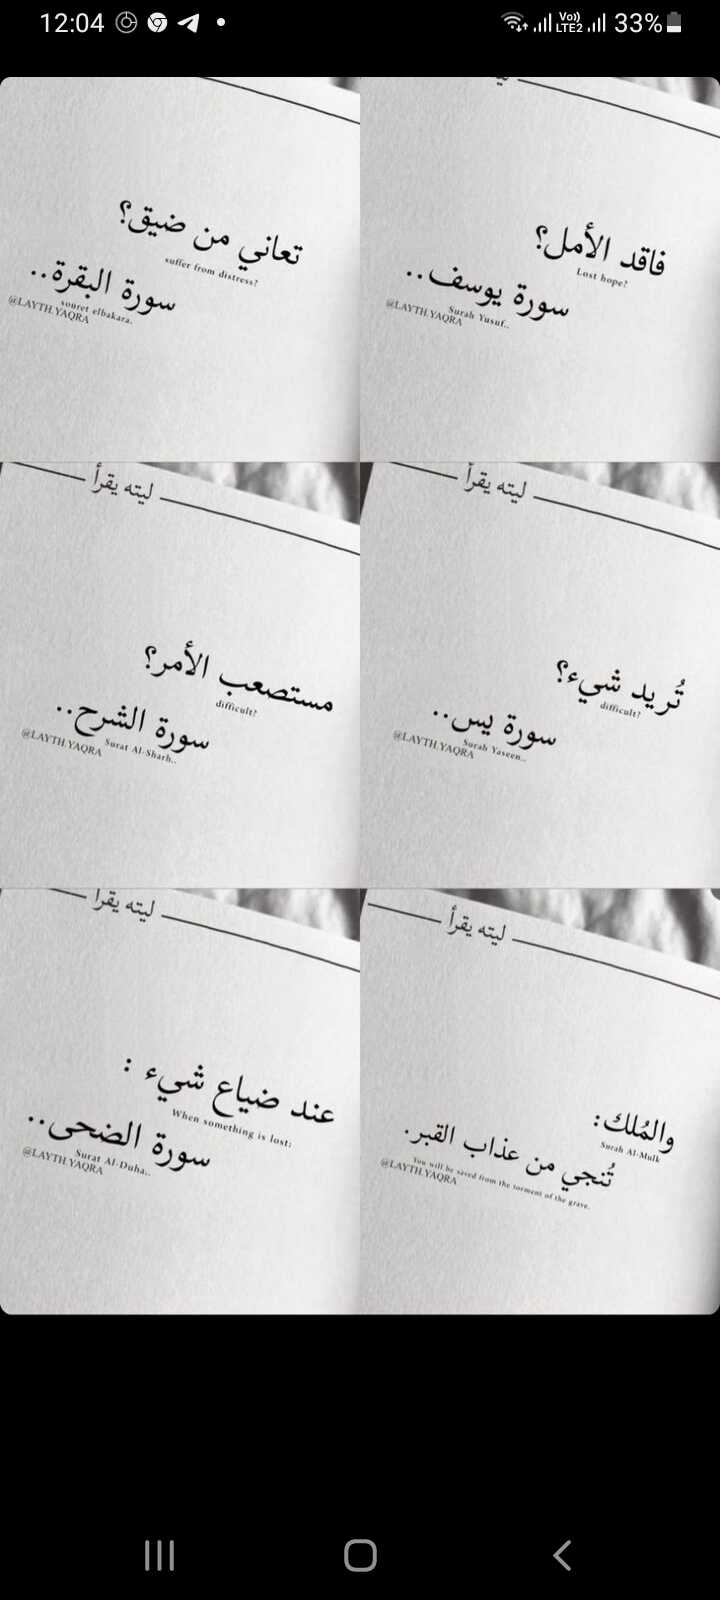 12:04
Vo)) LTE2 33%
تعاني من ضيق؟
suffer from distress?
سورة البقرة..
souret elbakara.
@LAYTH.YAQRA
فاقد الأمل؟
Lost hope?
سورة يوسف..
Surah Yusuf..
@LAYTH.YAQRA
ليته يقرأ
مستصعب الأمر؟
difficult?
سورة الشرح..
Surat Al-Sharh..
@LAYTH.YAQRA
ليته يقرأ
تُريد شيء؟
difficult?
سورة يس..
Surah Yaseen..
@LAYTH.YAQRA
ليته يقرأ
عند ضياع شيء :
When something is lost:
سورة الضحى..
Surat Al-Duha..
@LAYTH.YAQRA
ليته يقرأ
والمُلك:
Surah Al-Mulk
تُنجي من عذاب القبر.
You will be saved from the torment of the grave.
@LAYTH.YAQRA